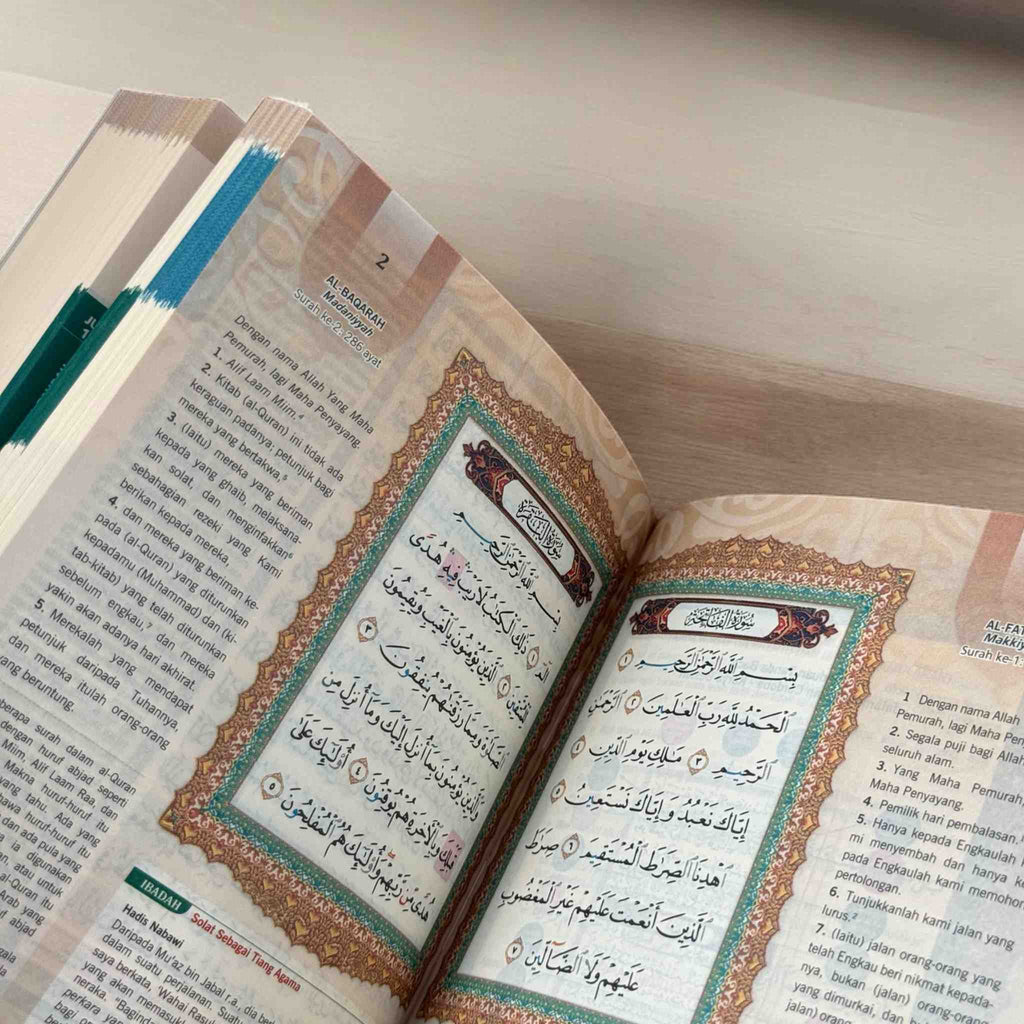 سُورَةُ الفَاتِحَةِ
بِسْمِ اللَّهِ الرَّحْمَٰنِ الرَّحِيمِ ١
الْحَمْدُ لِلَّهِ رَبِّ الْعَٰلَمِينَ ٢ الرَّحْمَٰنِ
الرَّحِيمِ ٣ مَٰلِكِ يَوْمِ الدِّينِ ٤
إِيَّاكَ نَعْبُدُ وَإِيَّاكَ نَسْتَعِينُ ٥
اهْدِنَا الصِّرَٰطَ الْمُسْتَقِيمَ ٦ صِرَٰطَ
الَّذِينَ أَنْعَمْتَ عَلَيْهِمْ غَيْرِ الْمَغْضُوبِ
عَلَيْهِمْ وَلَا الضَّآلِّينَ ٧
AL-FAT
Makkiy
Surah ke-1
1 Dengan nama Allah
Pemurah, lagi Maha Pen
2. Segala puji bagi Allah
seluruh alam.
3. Yang Maha Pemurah,
Maha Penyayang.
4. Pemilik hari pembalasan.
5. Hanya kepada Engkaulah k
mi menyembah dan hanya k
pada Engkaulah kami memohon
pertolongan.
6. Tunjukkanlah kami jalan yang
lurus.²
7. (Iaitu) jalan orang-orang yang
telah Engkau beri nikmat kepada-
nya, bukan (jalan) orang-oran
yang dimurkai, dan
jalan) oran
2
AL-BAQARAH
Madaniyyah
Surah ke-2: 286 ayat
Dengan nama Allah Yang Maha
Pemurah, lagi Maha Penyayang.
1. Alif Laam Miim.⁴
2. Kitab (al-Quran) ini tidak ada
keraguan padanya; petunjuk bagi
mereka yang bertakwa.⁵
3. (Iaitu) mereka yang beriman
kepada yang ghaib, melaksana-
kan solat, dan menginfakkan⁶
sebahagian rezeki yang Kami
berikan kepada mereka,
4. dan mereka yang beriman ke-
pada (al-Quran) yang diturunkan
kepadamu (Muhammad) dan (ki-
tab-kitab) yang telah diturunkan
sebelum engkau,⁷ dan mereka
yakin akan adanya hari akhirat.
5. Merekalah yang mendapat
petunjuk daripada Tuhannya,
dan mereka itulah orang-orang
yang beruntung.
سُورَةُ البَقَرَةِ
بِسْمِ اللَّهِ الرَّحْمَٰنِ الرَّحِيمِ
الٓمٓ ١ ذَٰلِكَ الْكِتَٰبُ لَا رَيْبَ فِيهِ هُدًى
لِّلْمُتَّقِينَ ٢ الَّذِينَ يُؤْمِنُونَ بِالْغَيْبِ وَيُقِيمُونَ
الصَّلَوٰةَ وَمِمَّا رَزَقْنَٰهُمْ يُنفِقُونَ ٣
وَالَّذِينَ يُؤْمِنُونَ بِمَآ أُنزِلَ إِلَيْكَ وَمَآ أُنزِلَ مِن
قَبْلِكَ وَبِالْآخِرَةِ هُمْ يُوقِنُونَ ٤ أُولَٰٓئِكَ عَلَىٰ
هُدًى مِّن رَّبِّهِمْ وَأُولَٰٓئِكَ هُمُ الْمُفْلِحُونَ ٥
berapa surah dalam al-Quran
dengan huruf abjad seperti
Miim, Alif Laam Raa, dan
Makna huruf-huruf itu
yang tahu. Ada yang
bahawa huruf-huruf itu
dan ada pula yang
ia digunakan
an, atau untuk
al-Quran itu
Arab yang
huruf abjad
IBADAH
Solat Sebagai Tiang Agama
Hadis Nabawi
Daripada Mu'az bin Jabal r.a., dia be
dalam suatu perjalanan
saya berkata, 'Wahai Rasul
yang akan memasuk
neraka. "Baginda
perkara yan
bagi or